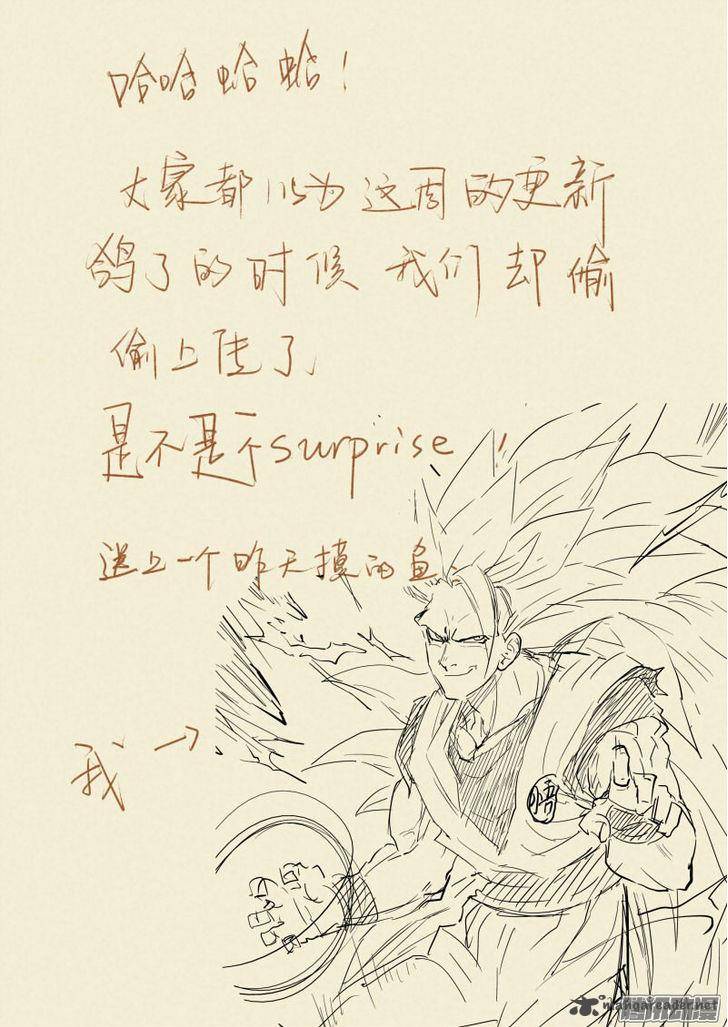 哈哈蛤蛤!
大家都以为这周的更新
鸽了的时候 我们却偷
偷上传了
是不是一个surprise!!
送上一个昨天摸的鱼、
我→
悟
mangareader.net
腾讯动漫